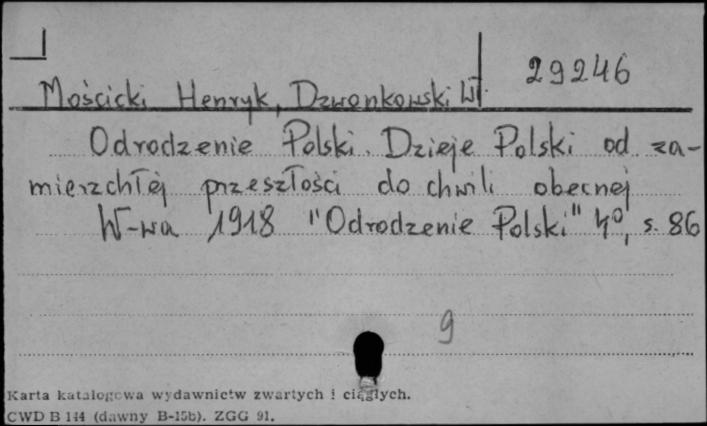 29246
Mościcki Henryk, Dzwonkowski Wł.
Odrodzenie Polski. Dzieje Polski od za-
mierzchłej przeszłości do chwili obecnej
W-wa 1918 "Odrodzenie Polski" 4⁰, s. 86
9
Karta katalogowa wydawnictw zwartych i ciągłych.
CWD B 144 (dawny B-15b). ZGG 91.